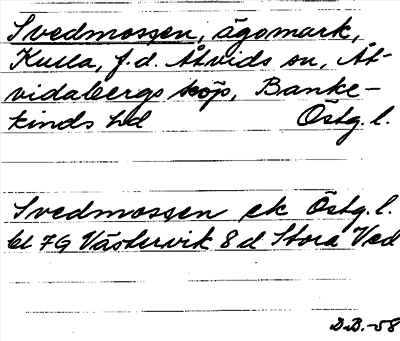 Svedmossen, ägomark,
Kulla, f.d. Åtvids sn, Åt-
vidabergs köp, Banke-
kinds hd Östg. l.
Svedmossen ek Östg. l.
bl 7G Västervik 8 d Stora Ved
D.B.-58